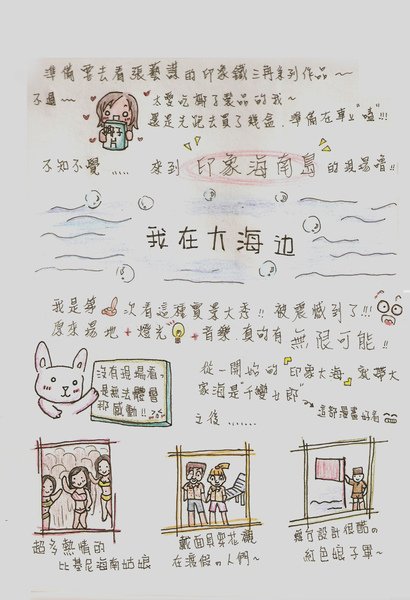 準備要去看張藝謀的印象鐵三角系列作品～～
不過～～ 太愛吃椰子製品的我～
椰子片
還是先跑去買了幾盒，準備在車上"嗑"!!!
不知不覺..... 來到 印象海南島 的現場嚕!!
我在大海边
我是第 次看這種實景大秀!! 被震憾到了!!!
原來場地+燈光+音樂，真的有無限可能!!
沒有現場看，
是無法體會
那感動!!
從一開始的「印象大海」就帶大
家海是"千變女郎"
之後.......
這部漫畫好看
超多熱情的
比基尼海南姑娘
戴面具穿花襯
在渡假的人們～
舞台設計很酷的
紅色娘子軍～